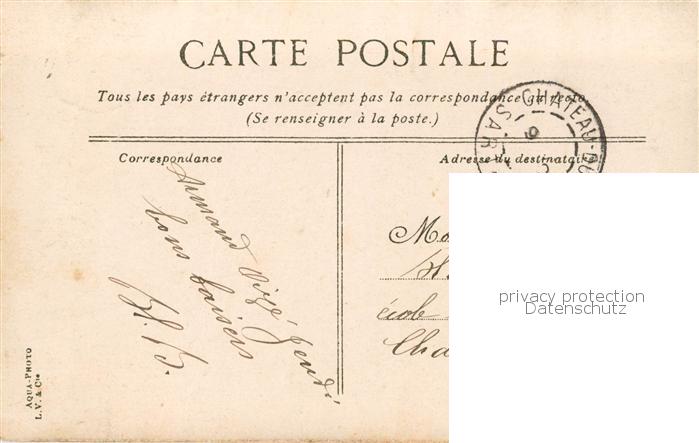 CARTE POSTALE
Tous les pays étrangers n'acceptent pas la correspondance au recto.
(Se renseigner à la poste.)
CHATEAU-DU
SAR
Correspondance
Adresse du destinataire
Armand Vizé jeudi
bons baisers
H. B.
école
Cha
privacy protection
Datenschutz
AQUA-PHOTO
L. V. & Cie